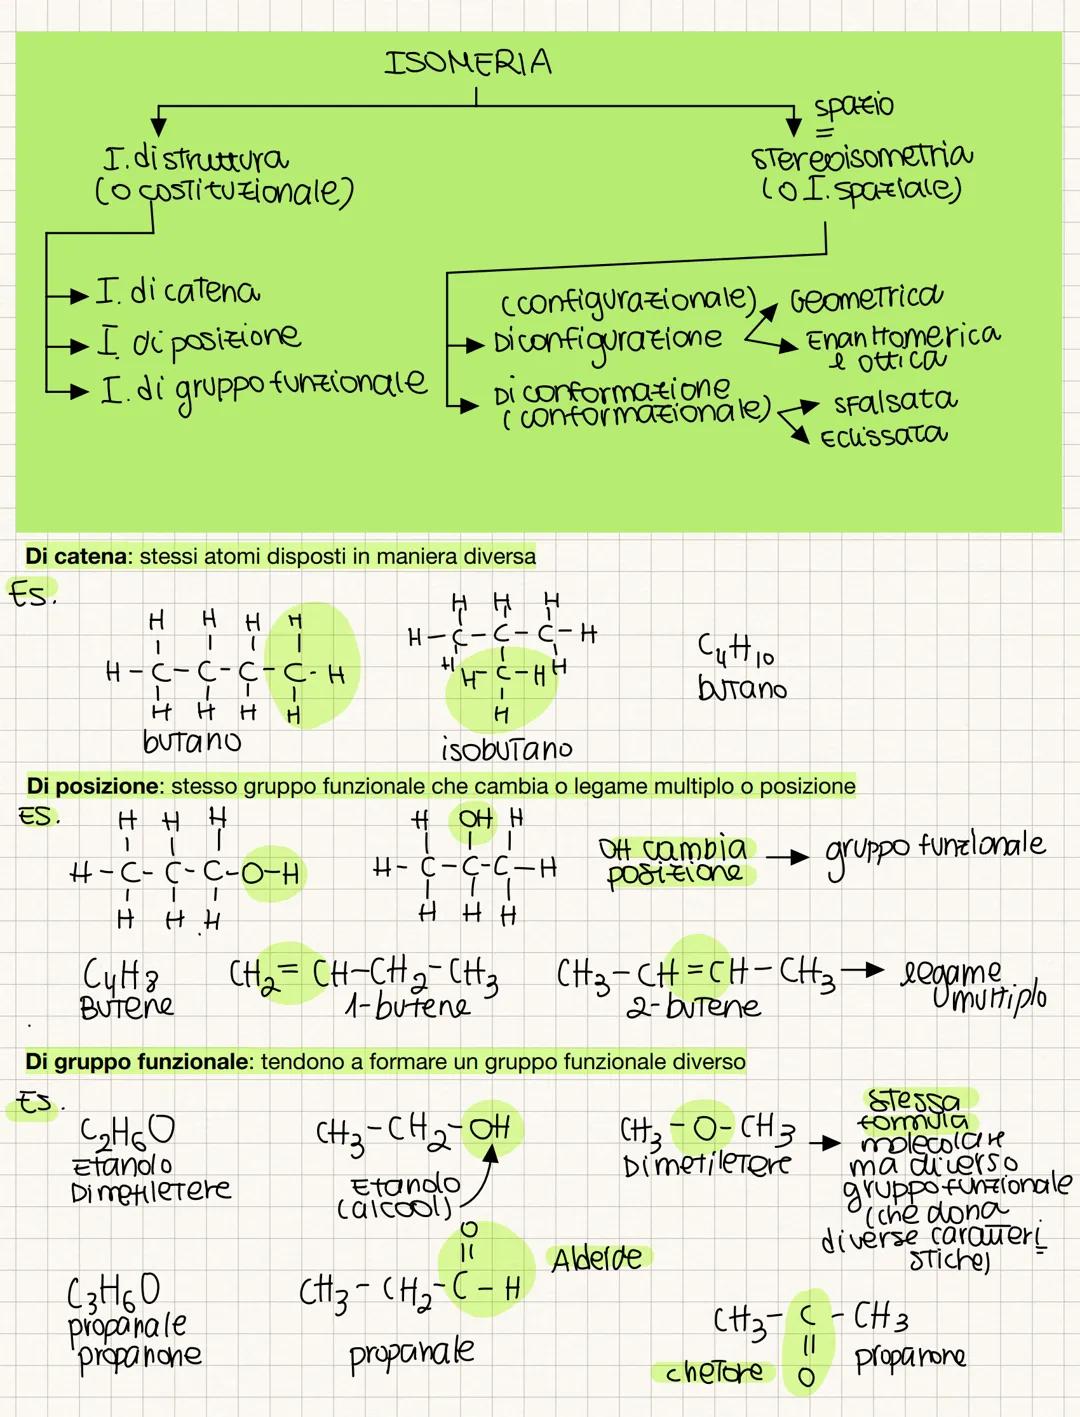 ISOMERIA
I. di struttura
(o costituzionale)
spazio
=
stereoisometria
(o I. spaziale)
I. di catena
I. di posizione
I. di gruppo funzionale
(configurazionale)
Di configurazione
Geometrica
Enantiomerica
e ottica
Di conformazione
(conformazionale)
Sfalsata
Eclissata
Di catena: stessi atomi disposti in maniera diversa
Es.
H H H H
H-C-C-C-C-H
H H H H
butano
H H H
H-C-C-C-H
H H-C-H H
H
isobutano
C4H10
butano
Di posizione: stesso gruppo funzionale che cambia o legame multiplo o posizione
ES.
H H H
H-C-C-C-O-H
H H H
H OH H
H-C-C-C-H
H H H
OH cambia
posizione
gruppo funzionale
C4H8
Butene
CH2=CH-CH2-CH3
1-butene
CH3-CH=CH-CH3
2-butene
legame
multiplo
Di gruppo funzionale: tendono a formare un gruppo funzionale diverso
Es.
C2H6O
Etanolo
Dimetiletere
CH3-CH2-OH
Etanolo
(alcool)
CH3-O-CH3
Dimetiletere
stessa
formula
molecolare
ma diverso
gruppo funzionale
(che dona
diverse caratteri
stiche)
C3H6O
propanale
propanone
O
||
CH3-CH2-C-H
propanale
Aldeide
CH3-C-CH3
||
O
chetone
propanone